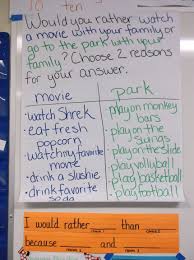 ten
Would you rather watch
a movie with your family or
go to the park with your
family? Choose 2 reasons
for your answer.
movie
park
• watch Shrek
• eat fresh
popcorn
• watch my favorite
movie
• drink a slushie
• drink favorite
soda
• play on monkey
bars
• play on the
swings
• play on the slide
• play volleyball
• play basketball
• play football
I would rather than
because and